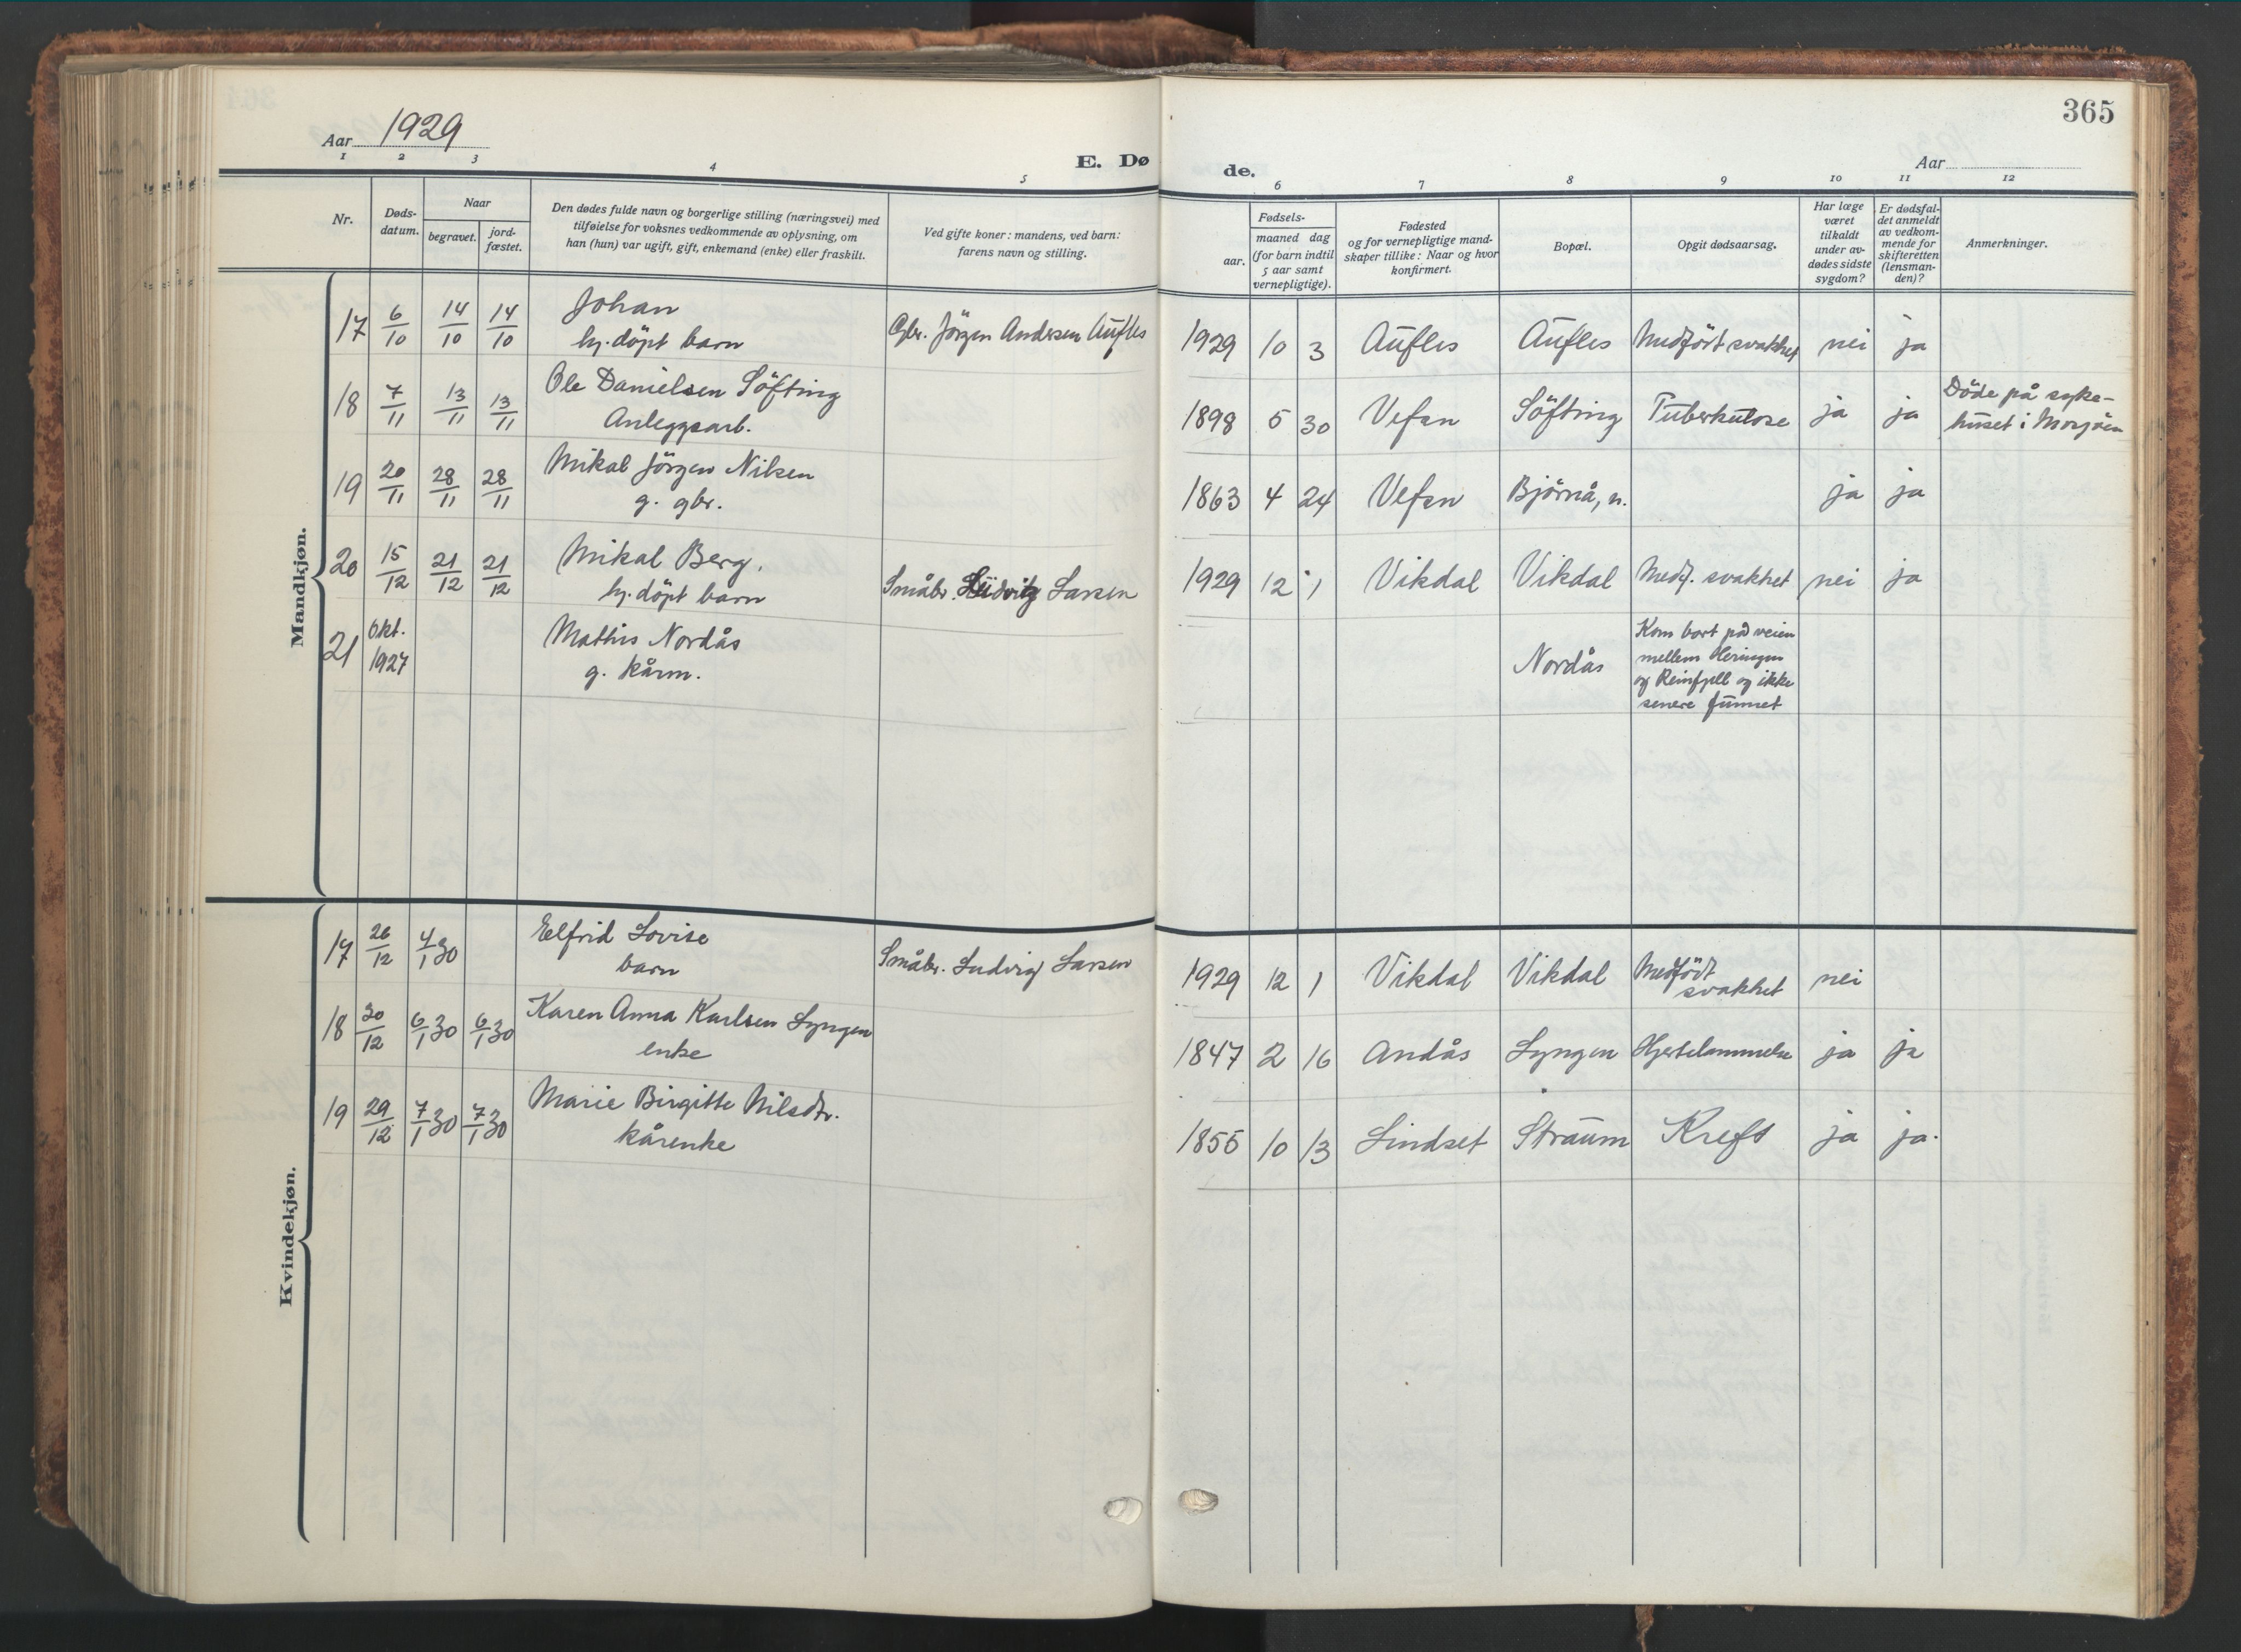 365
Aar 1929
E. Dø
de.
Aar
1 2 3 4 5 6 7 8 9 10 11 12
Nr.
Døds-
datum.
Naar
begravet.
jord-
fæstet.
Den dødes fulde navn og borgerlige stilling (næringsvei) med
tilføielse for voksnes vedkommende av oplysning, om
han (hun) var ugift, gift, enkemand (enke) eller fraskilt.
Ved gifte koner: mandens, ved barn:
farens navn og stilling.
Fødsels-
aar.
maaned dag
(for barn indtil
5 aar samt
vernepligtige).
Fødested
og for vernepligtige mand-
skaper tillike: Naar og hvor
konfirmert.
Bopæl.
Opgit dødsaarsag.
Har læge
været
tilkaldt
under av-
dødes sidste
sygdom?
Er dødsfal-
det anmeldt
av vedkom-
mende for
skifteretten
(lensman-
den)?
Anmerkninger.
Mandkjøn.
17 6/10 14/10 14/10 Johan
hj. döpt barn
Gbr. Jörgen Andersen Aufles 1929 10 3 Aufles Aufles Medfört svakhet nei ja
18 7/11 13/11 13/11 Ole Danielsen Söfting
Anleggsarb.
1898 5 30 Vefsn Söfting Tuberkulose ja ja Döde på syke-
huset i Mosjöen
19 20/11 28/11 28/11 Mikal Jörgen Nilsen
g. gbr.
1863 4 24 Vefsn Björnå, n. ja ja
20 15/12 21/12 21/12 Mikal Berg.
hj. döpt barn
Småbr. Ludvig Larsen 1929 12 1 Vikdal Vikdal Medf. svakhet nei ja
21 Okt.
1927
Mathis Nordås
g. kårm.
Nordås
Kom bort på veien
mellem Heringen
og Reinfjell og ikke
senere funnet
Kvindekjøn.
17 26/12 4/1 30 Eelfrid Lovise
barn
Småbr. Ludvig Larsen 1929 12 1 Vikdal Vikdal Medfödt
svakhet nei
18 30/12 6/1 30 6/1 30 Karen Anna Karlsen Lyngen
enke
1847 2 16 Andås Lyngen Hjertelammelse ja ja
19 29/12 7/1 30 7/1 30 Marie Birgitte Nilsdtr.
kårenke
1855 10 13 Lindset Straum Kreft ja ja.